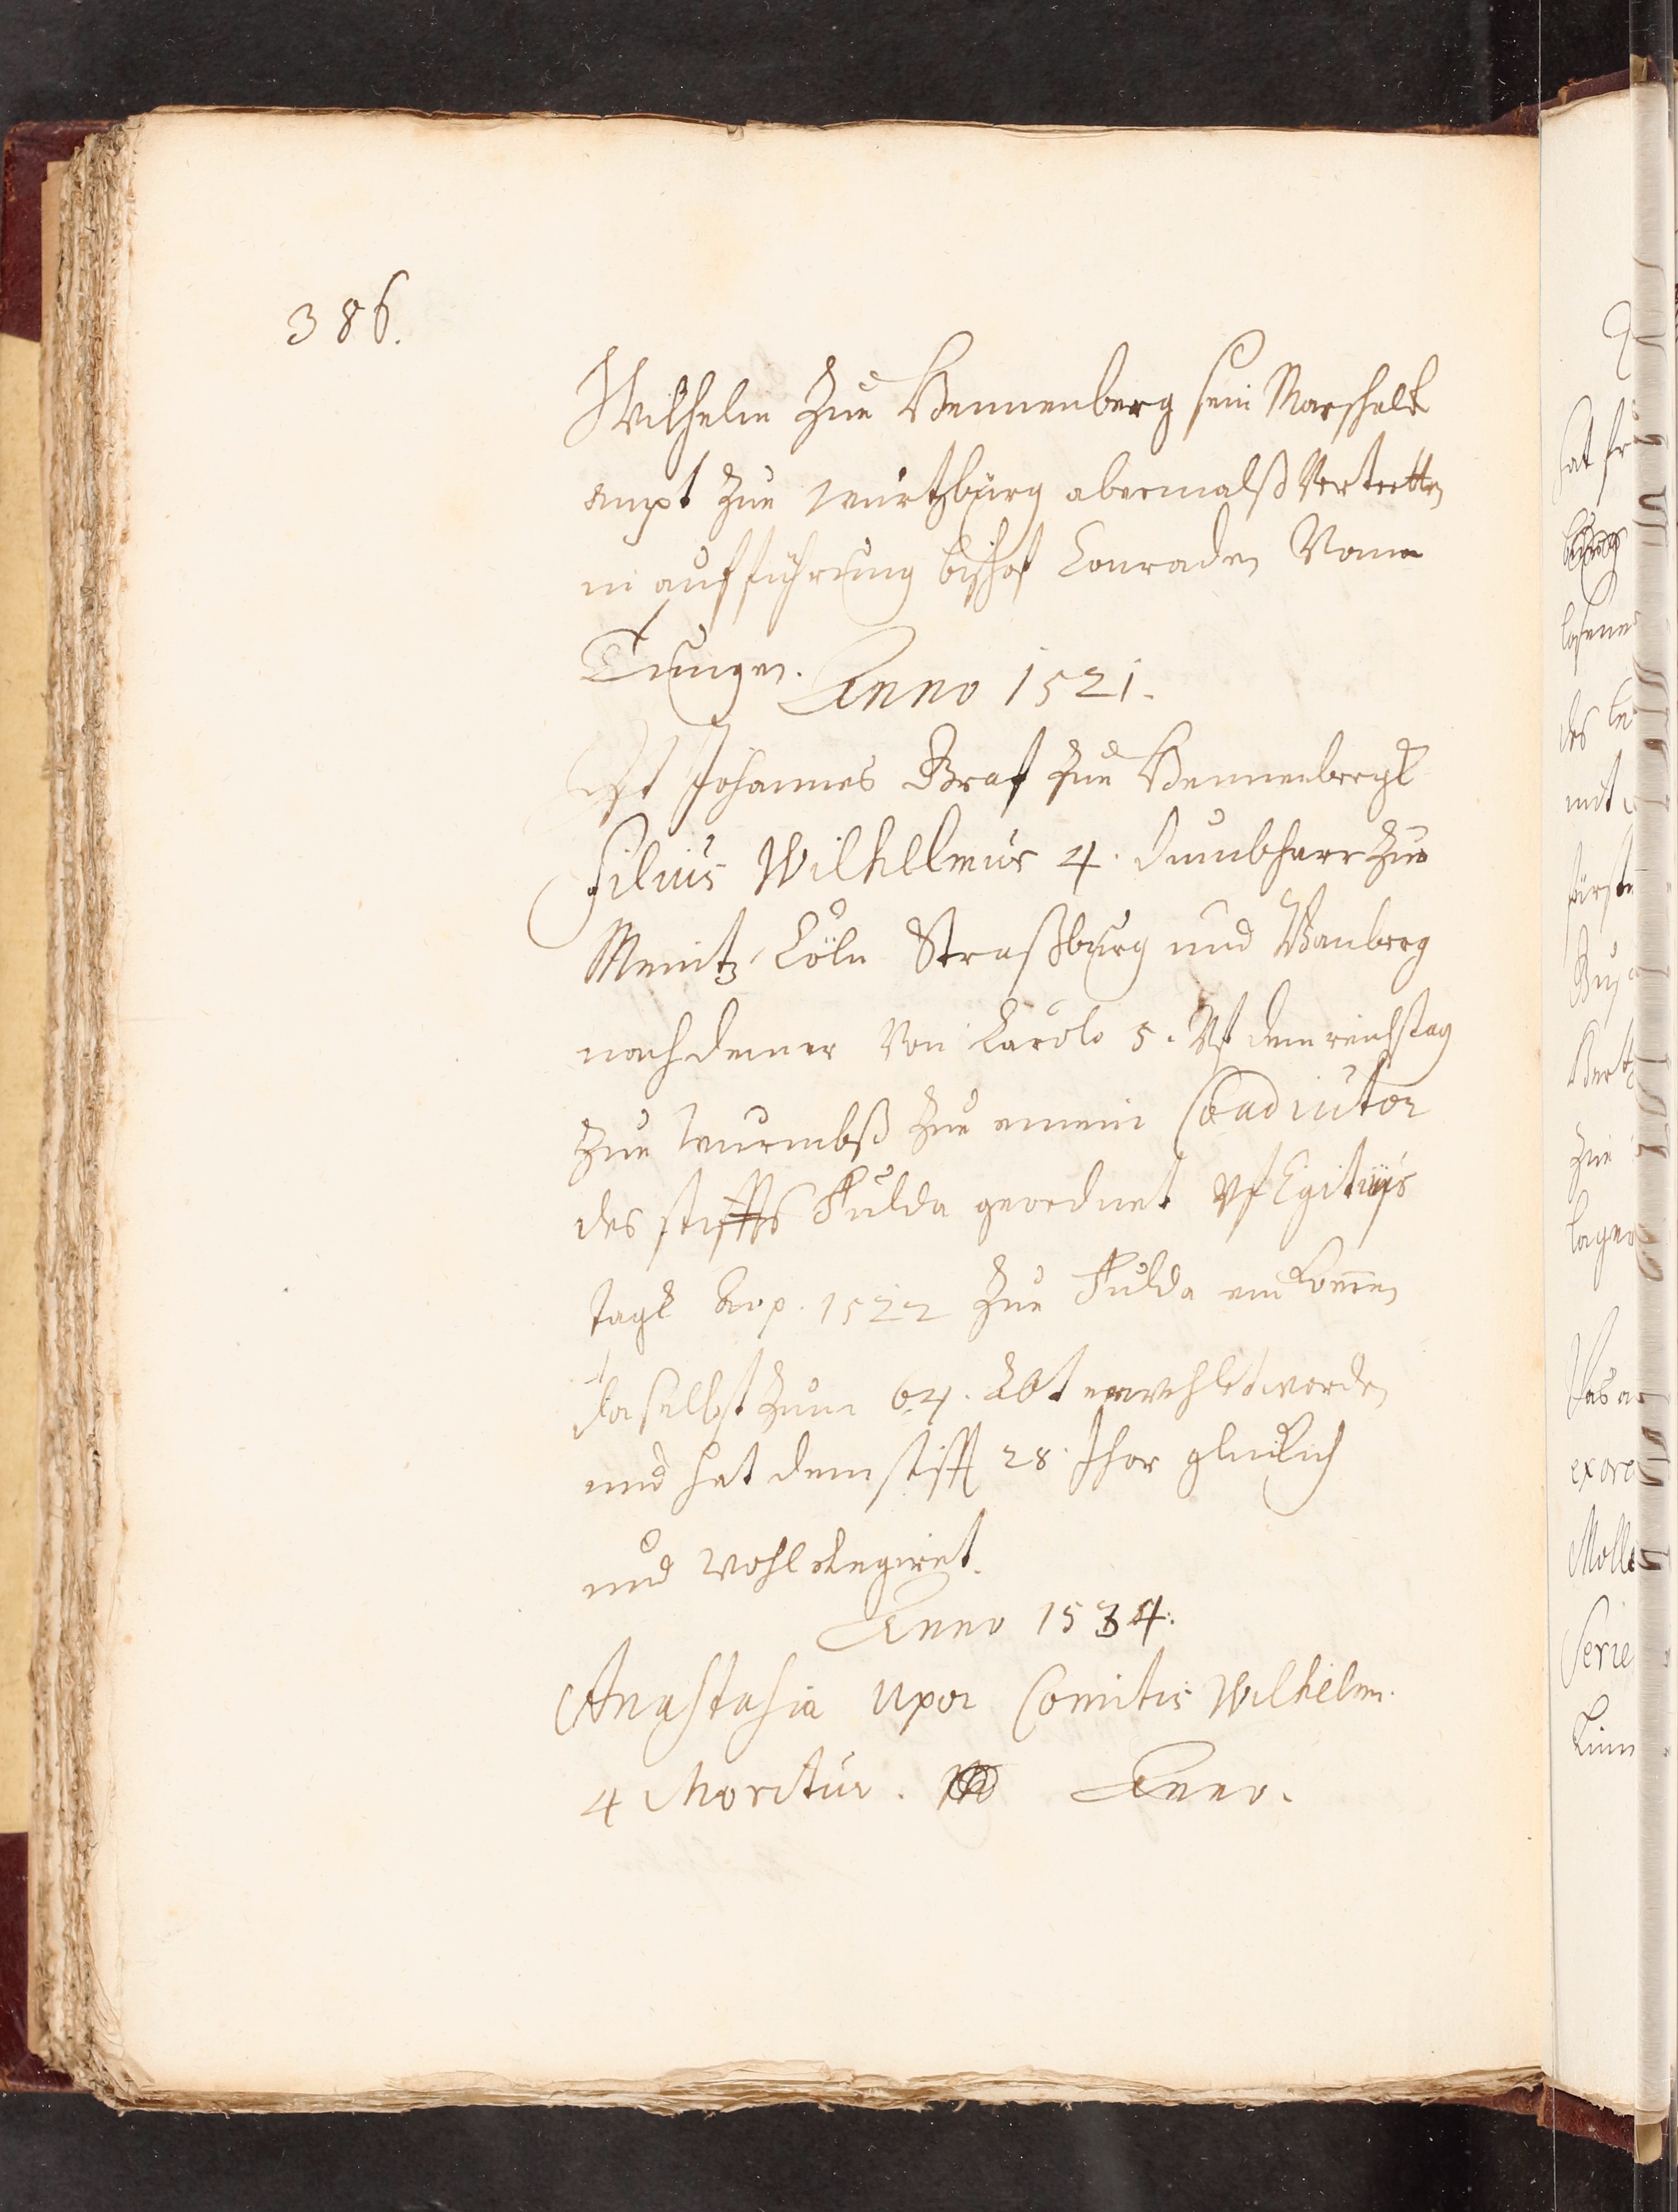 386.
Wilhelm zue Hennenberg sein Marschalk
ampt zue würtzburg abermalß Vertretten
in aufführung bischof Conraden Vonn
Tungen.
Anno 1521.
Ist Johannes Graf zue Hennenbergk
filius Wilhelmus 4. dumbherr zue
Meintz, Cöln Straßburg und Bamberg
nachdem er Von Carolo 5. Vf dem reichstag
zue wurmbß zue einem Coadiutor
des stiffts Fulda geordnet Vf Egitiijs
tagk Anno 1522 zue Fulda ein komen
daselbst zum 64. Abt erwehlet worden
und hat dem stifft 28. Jhar glücklich
und wohl Regiret.
Anno 1534.
Anastasia uxor Comitis Wilhelm.
4 Moritur. Anno.